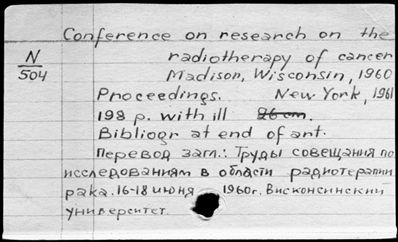 Conference on research on the
N
504
radiotherapy of cancer
Madison, Wisconsin, 1960
Proceedings. New York, 1961
198 p. with ill 26 cm.
Bibliogr at end of art.
Перевод загл.: Труды совещания по
исследованиям в области радиотерапии
рака. 16-18 июня 1960г. Висконсинский
университет.